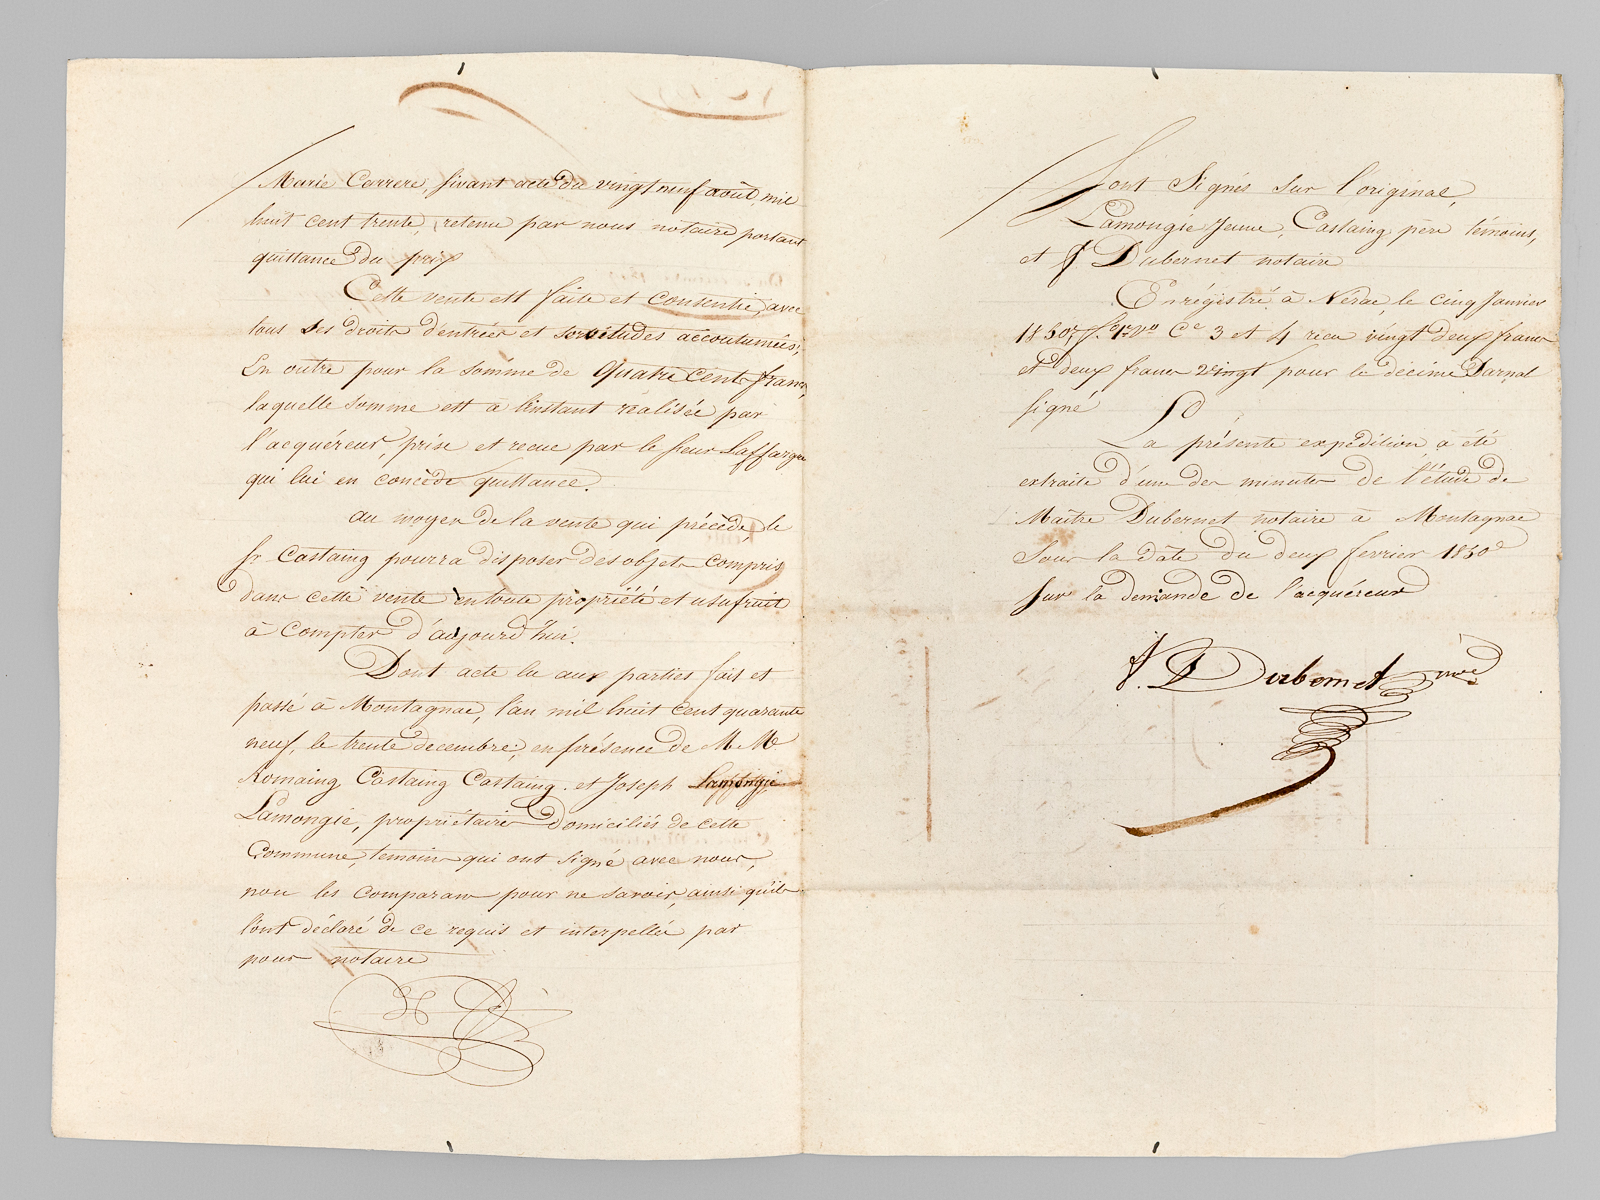 Marie Carrere, sivant acte du vingt neuf août mil
huit cent trente, retenu par nous notaire portant
quittance du prix
Cette vente est faite et consentie, avec
tous ses droits d'entrées et servitudes accoutumées,
En outre pour la somme de quatre cents francs,
laquelle somme est à l'instant réalisée par
l'acquéreur, prise et recue par le sieur Laffargue
qui lui en concède quittance.
au moyen de la vente qui précède, le
Sr Castaing pourra disposer des objets compris
dans cette vente en toute propriété et usufruit
à compter d'aujourd'hui.
Dont acte lu aux parties fait et
passé à Montagnac, l'an mil huit cent quarante
neuf, le trente decembre, en présence de M. Mr
Romaing Castaing Castaing et Joseph
Lamongie, propriétaires domiciliés de cette
Commune, temoins qui ont signé avec nous,
non les comparans pour ne savoir, ainsi qu'ils
l'ont déclaré de ce requis et interpellés par
nous notaire
Sont Signés sur l'original,
Lamongie Jeune, Castaing père témoins,
et f Dubernet notaire
Enrégistré à Nérac, le cinq Janvier
1850, f. Vo Ce 3 et 4 recu vingt deux francs
et deux francs vingt pour le décime Darnal
signé
La présente expédition a été
extraite d'une des minutes de l'étude de
Maître Dubernet notaire à Montagnac
Sous la date du deux fevrier 1850
Sur la demande de l'acquéreur
f. Dubernet nre